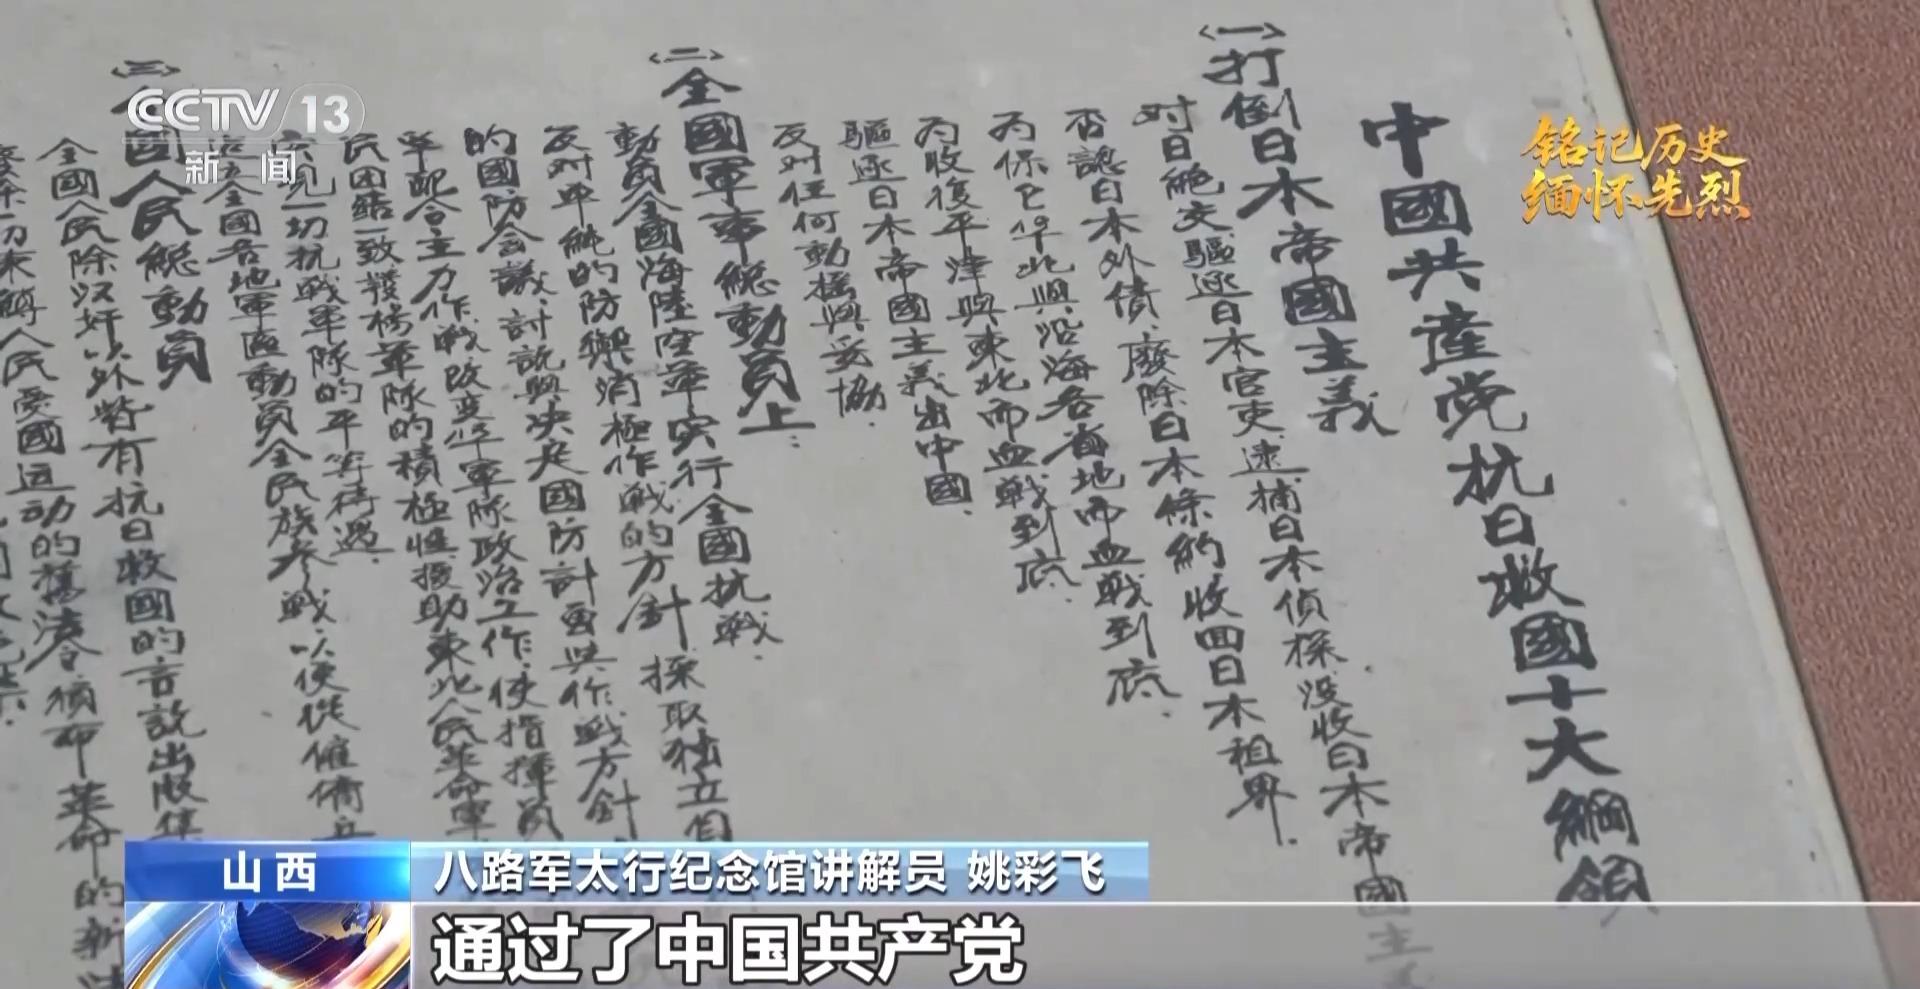 CCTV 13
新闻
铭记历史
缅怀先烈
中國共產党抗日救國十大綱領
〈一〉打倒日本帝國主義
对日絕交驅逐日本官吏逮捕日本偵探.没收日本帝國主
否認日本外債,廢除日本條約收回日本租界.
为保卫华北與沿海各省地而血戰到底.
为收復平津與東北而血戰到底.
驅逐日本帝國主義出中國.
反对任何動搖與妥協.
〈二〉全國軍事總動員上:
動員全國海陸空軍実行全國抗戰.
反对单純的防禦消極作戰的方針.採取独立自
的國防会議,討論與决定國防計畫與作戰方針
主力作戰改变軍隊政治工作,使指揮員
民团結一致發揚軍隊的積極性援助東北人民革命軍
一切抗戰軍隊的平等待遇.
全國各地軍區動員全民族参戰,以便從
〈三〉全國人民總動員
全國人民除汉奸以外皆有抗日救國的言論出版集
人民愛國运动的舊法令頒布革命的新法
山西
八路军太行纪念馆讲解员 姚彩飞
通过了中国共产党